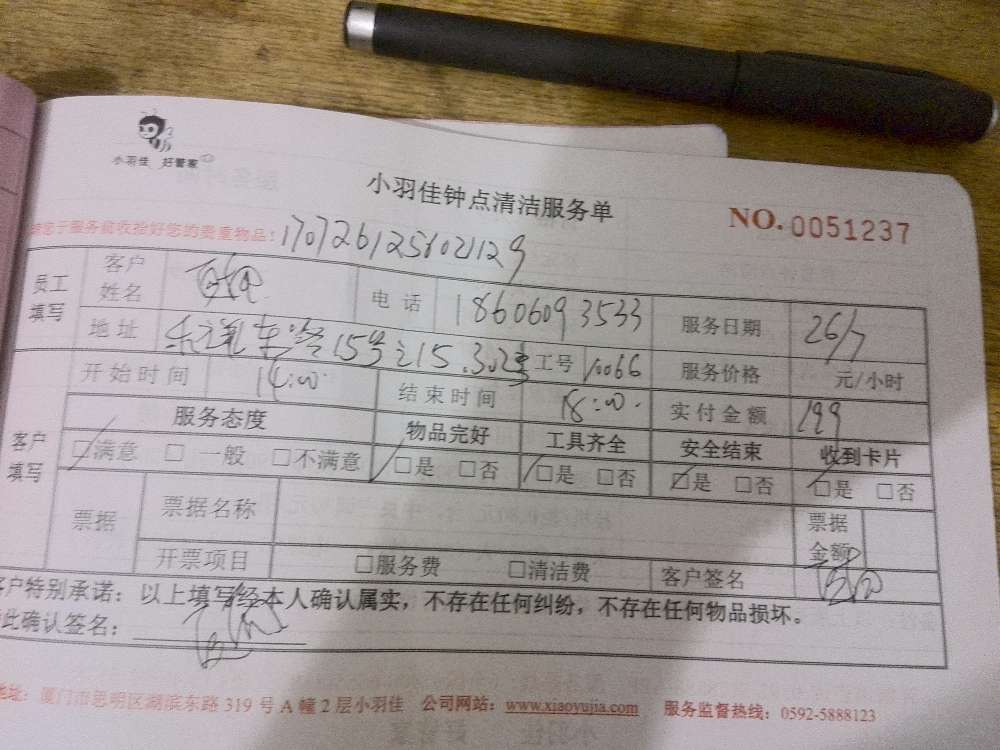 小羽佳 好管家
小羽佳钟点清洁服务单
NO. 0051237
您于服务前收拾好您的贵重物品! 1707261256021129
员工填写 客户姓名 电话 18606093533 服务日期 26/7
地址 15号之15.302 工号 10066 服务价格 元/小时
开始时间 14:00 结束时间 18:00. 实付金额 199
客户填写 服务态度 物品完好 工具齐全 安全结束 收到卡片
□满意 □一般 □不满意 □是 □否 □是 □否 □是 □否 □是 □否
票据 票据名称 票据金额
开票项目 □服务费 □清洁费 客户签名
客户特别承诺：以上填写经本人确认属实，不存在任何纠纷，不存在任何物品损坏。
此确认签名：
地址：厦门市思明区湖滨东路 319 号 A 幢 2 层小羽佳 公司网站：www.xiaoyujia.com 服务监督热线：0592-5888123